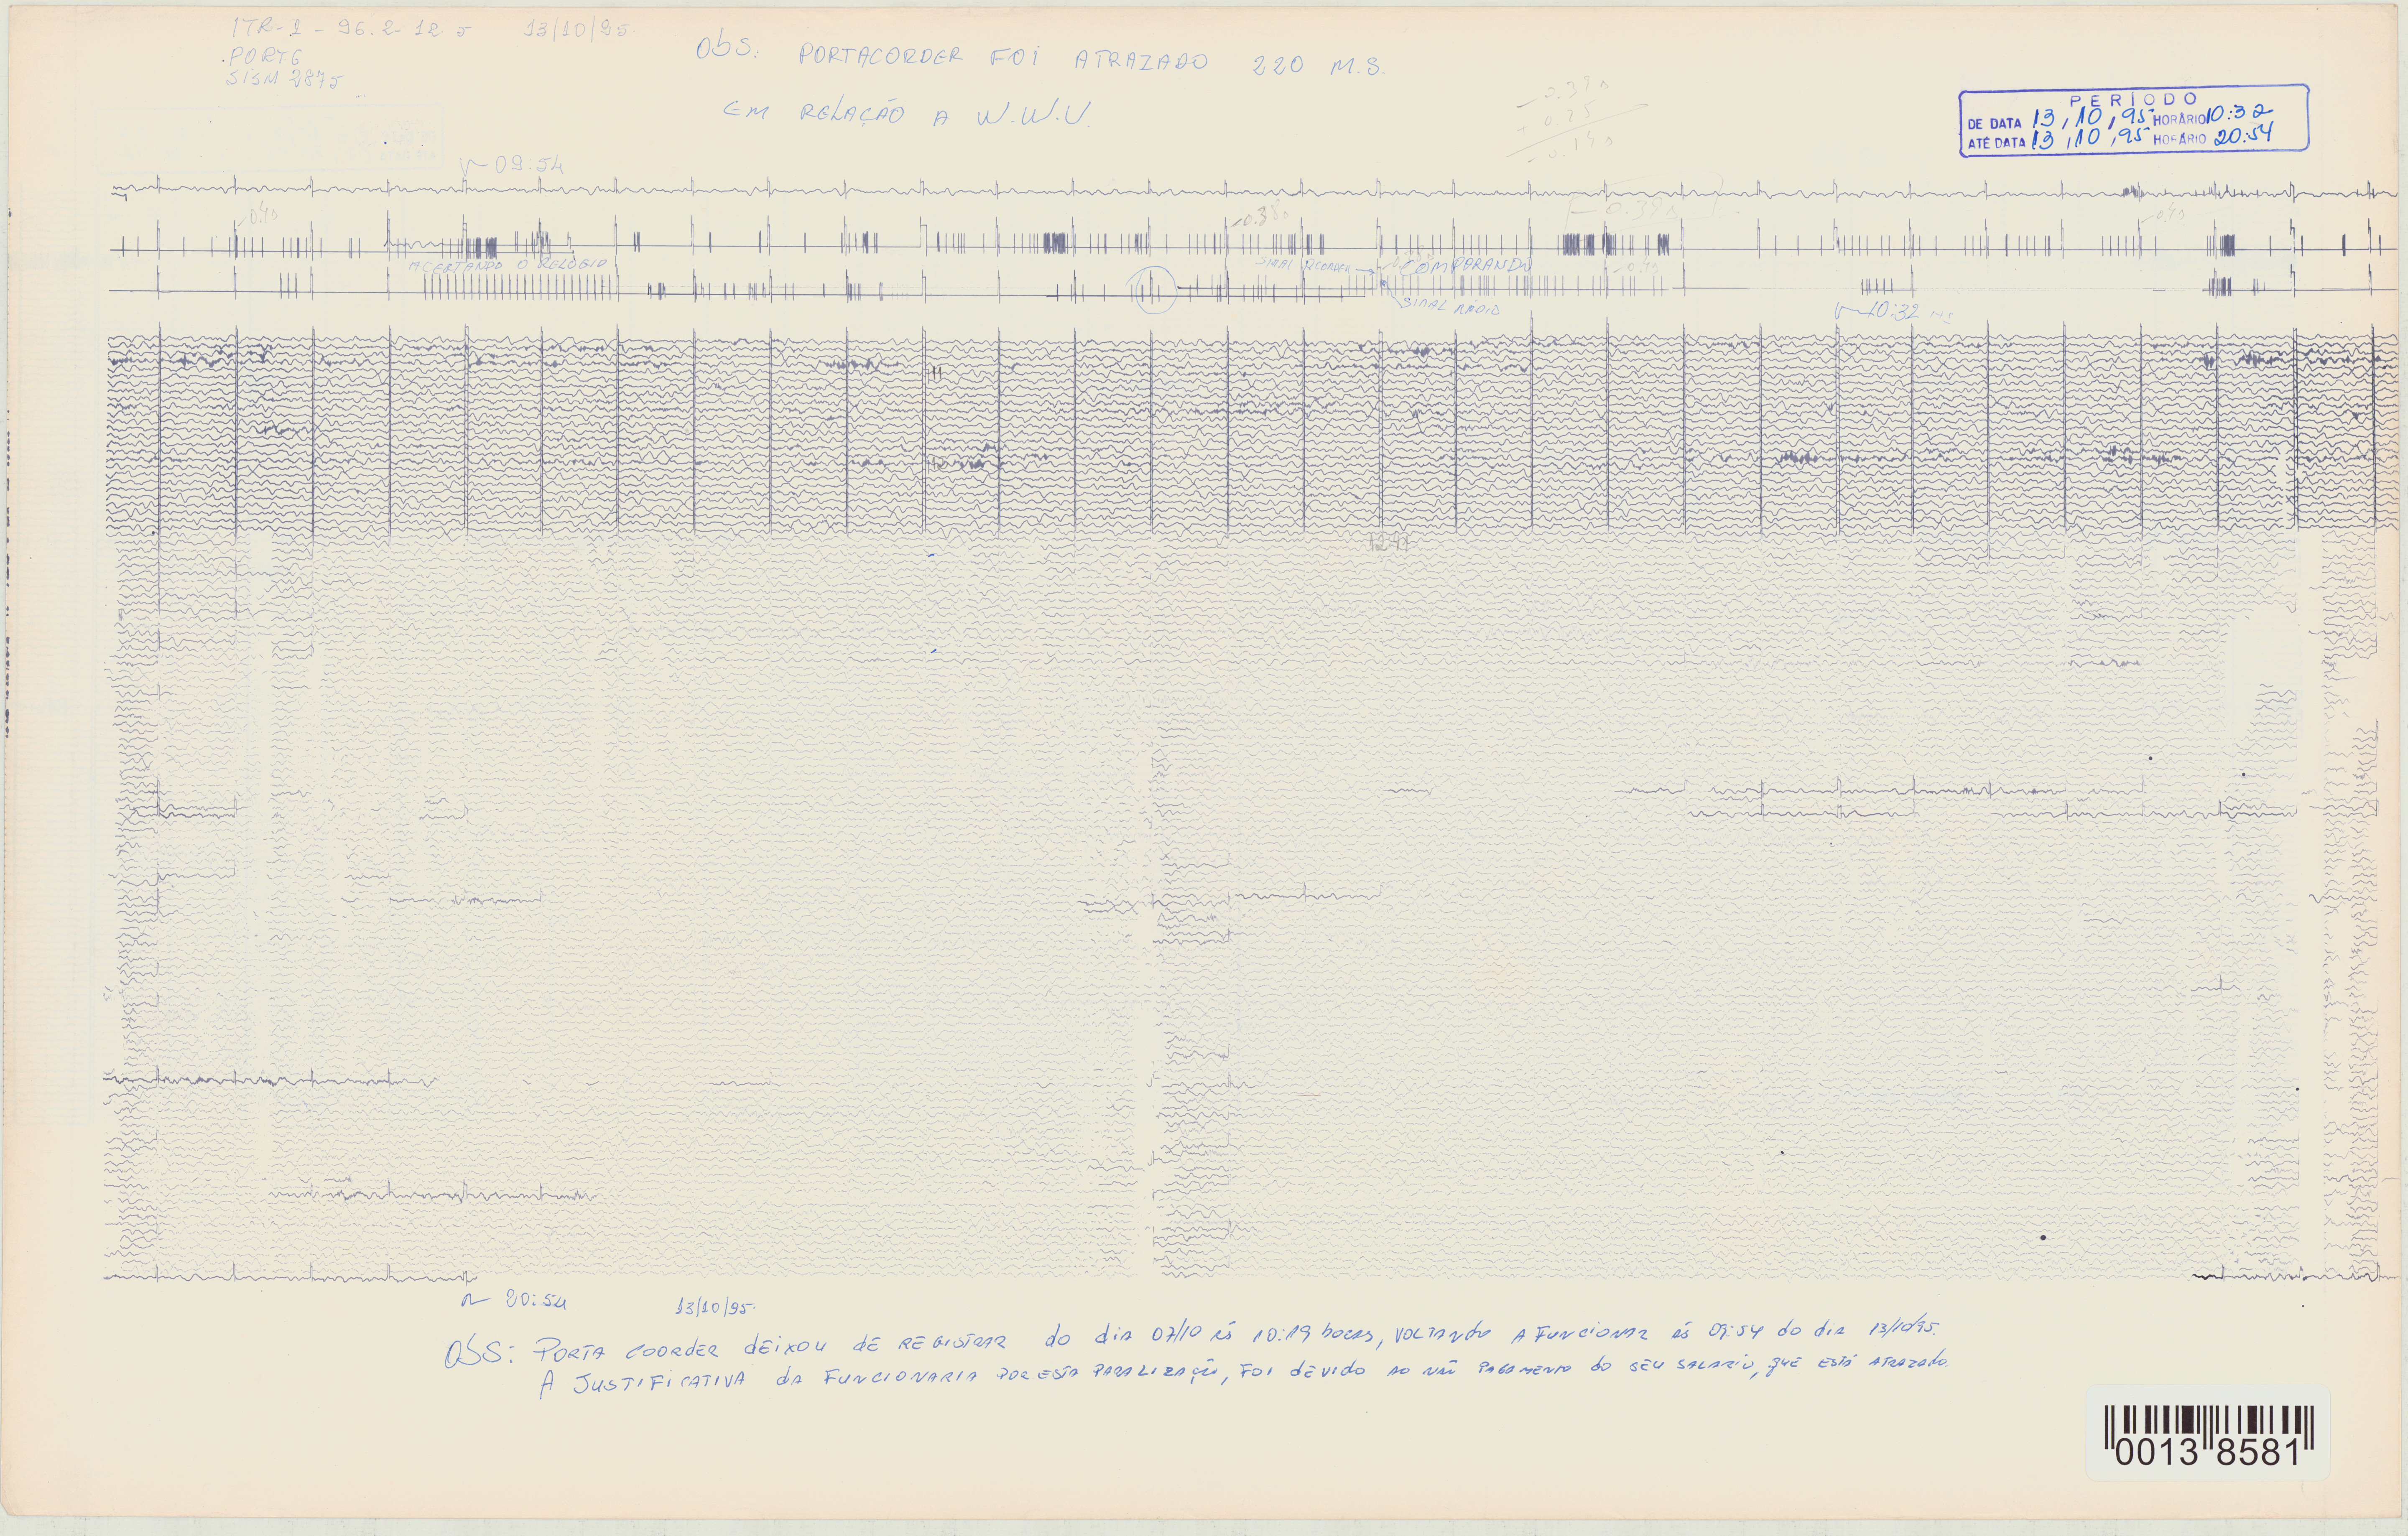 ITR-1 - 96.2-12 5 13/10/95.
PORT6
SISM 2875
Obs: PORTACORDER FOI ATRAZADO 220 M.S.
EM RELAÇÃO A W.W.V.
PERÍODO
DE DATA 13,10,95 HORÁRIO 10:32
ATÉ DATA 13,10,95 HORÁRIO 20:54
09:54
0.38s
ACERTANDO O RELOGIO
SINAL RCORDER → COMPARANDO
SINAL RADIO
10:32
11
12:41
20:54 13/10/95.
Obs: PORTA COORDER DEIXOU DE REGISTRAR do dia 07/10 às 10:19 horas, VOLTANDO A FUNCIONAR às 09:54 do dia 13/10/95.
A JUSTIFICATIVA da FUNCIONARIA POR ESTA PARALIZAÇÃO, FOI DEVIDO AO NÃO PAGAMENTO do SEU SALARIO, QUE ESTÁ ATRAZADO.
0013 8581